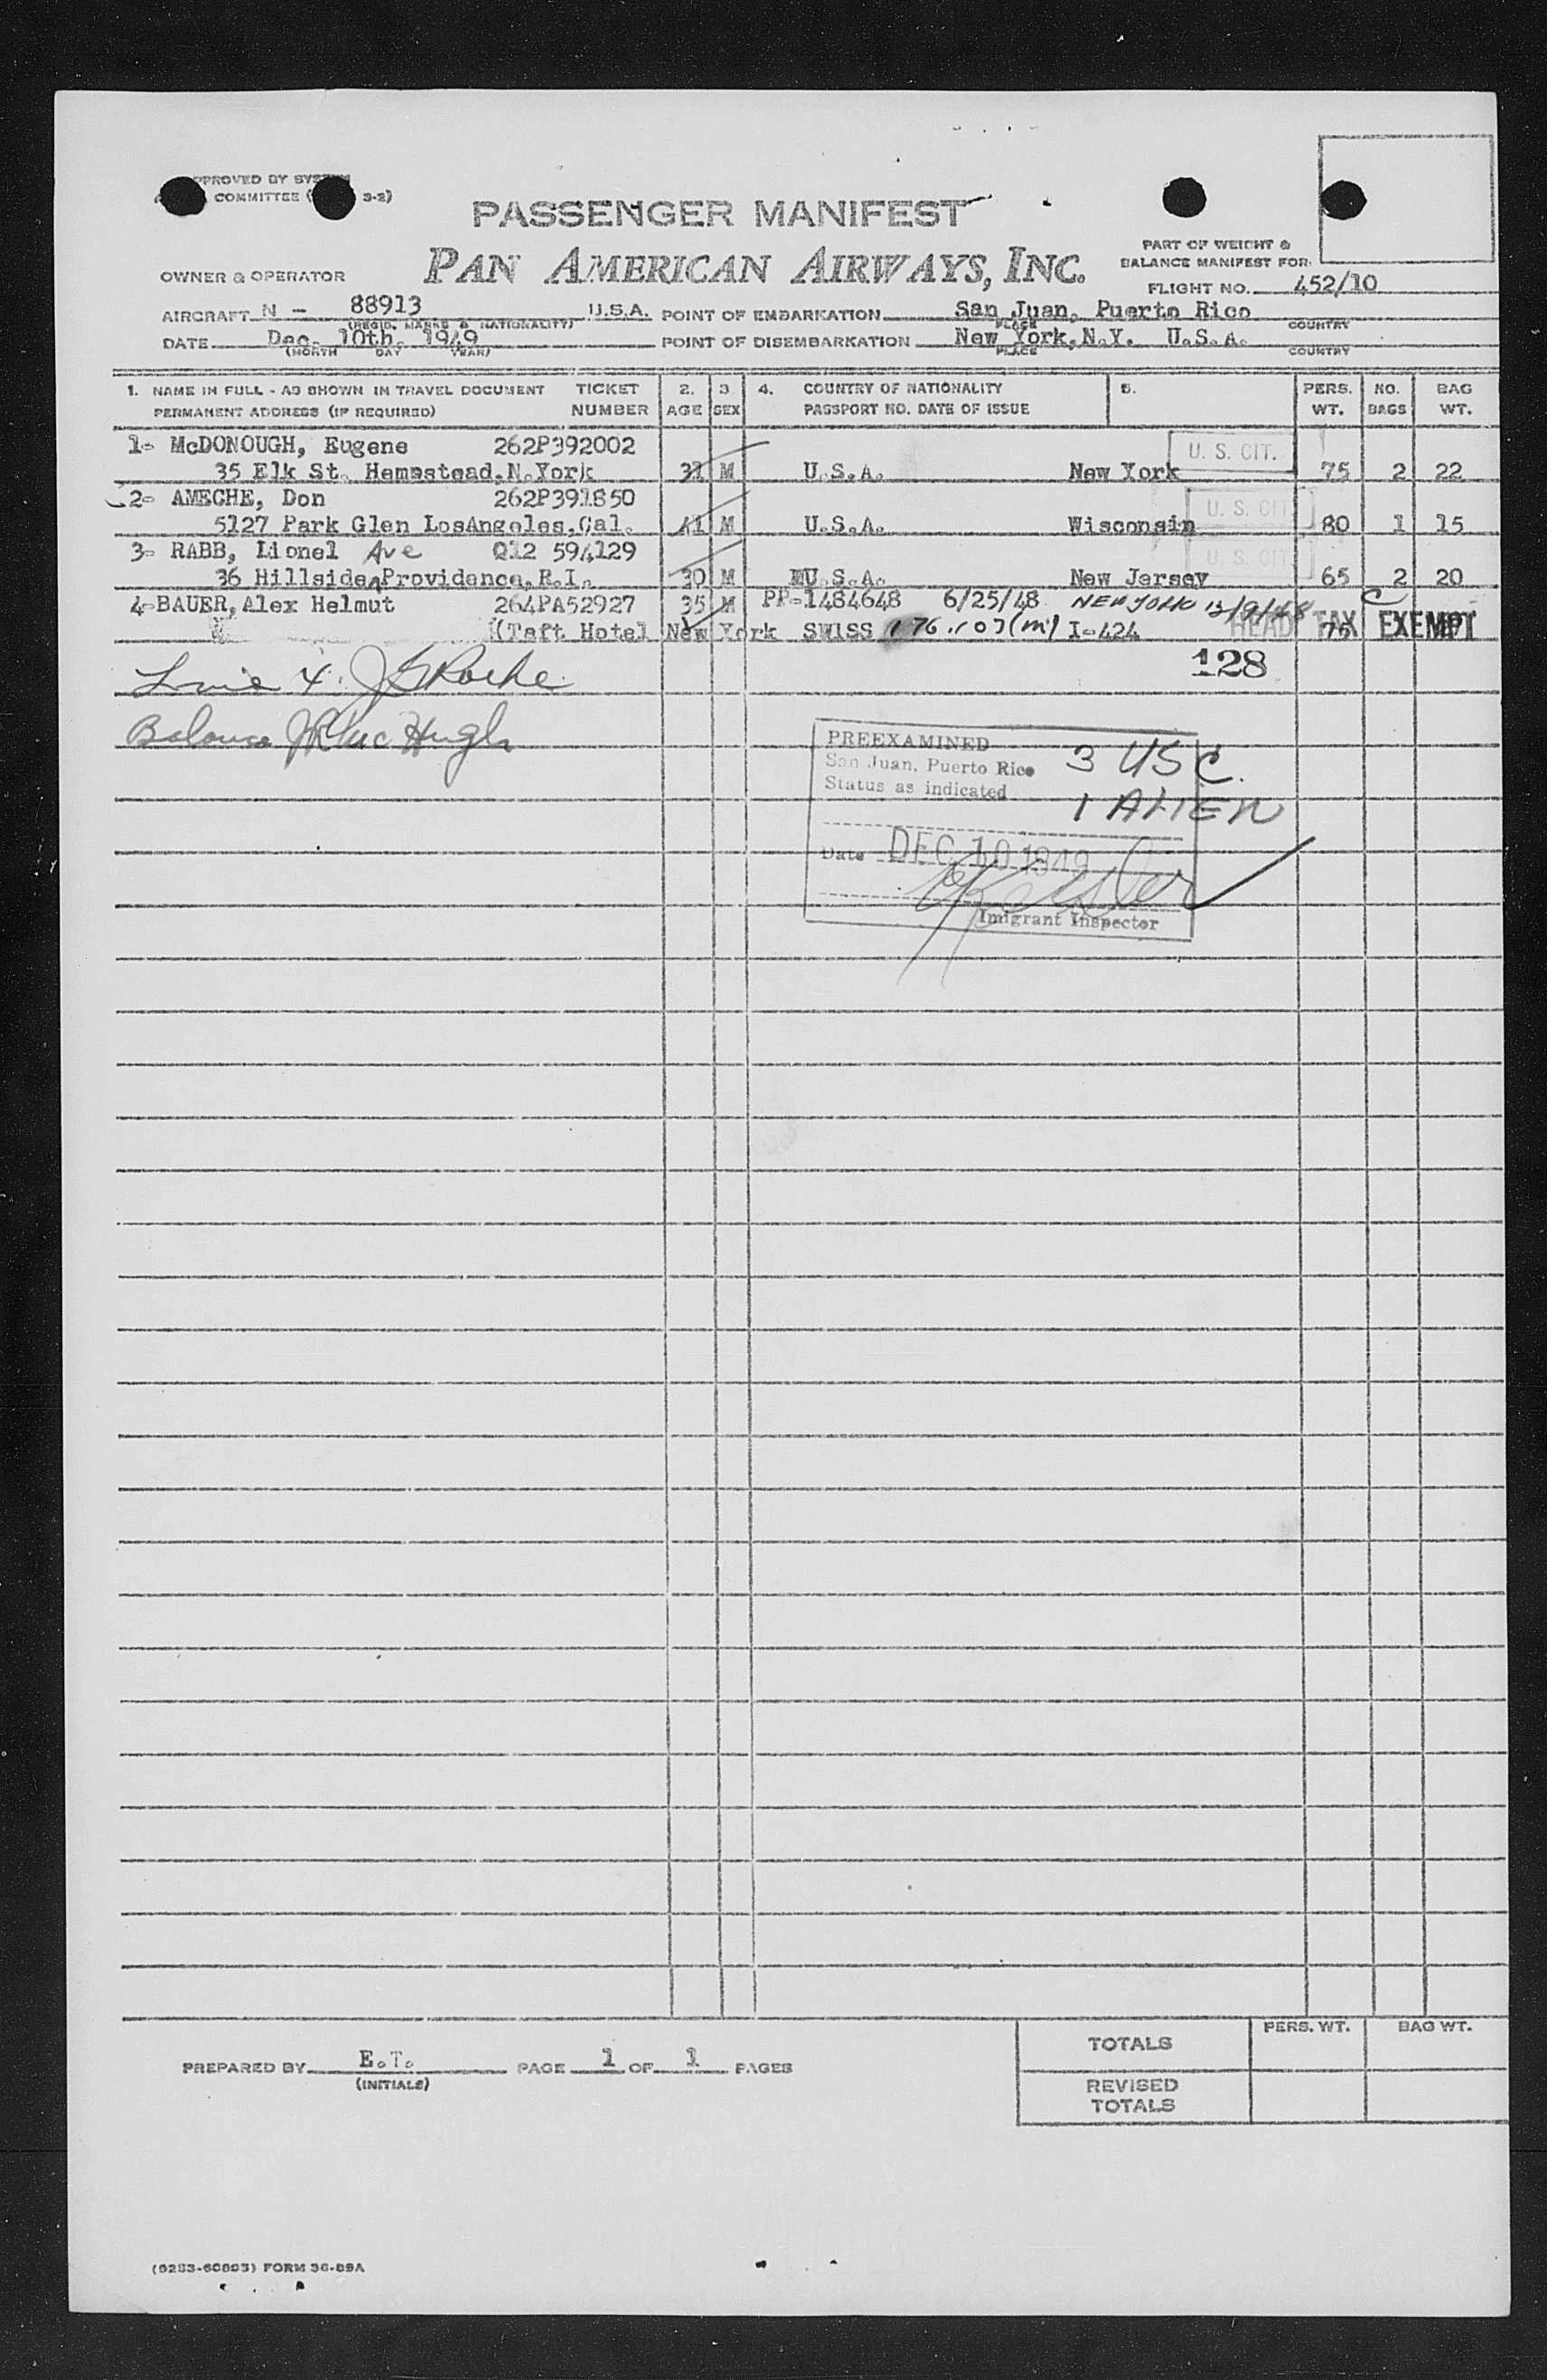 PASSENGER MANIFEST
PAN AMERICAN AIRWAYS, INC.
COMMITTEE ( 3-2)
PART OF WEIGHT &
BALANCE MANIFEST FOR:
OWNER & OPERATOR
FLIGHT NO. 452/10
AIRCRAFT N - 88913 U.S.A. POINT OF EMBARKATION San Juan, Puerto Rico
(REGIS. MARKS & NATIONALITY) PLACE COUNTRY
DATE Dec. 10th. 1949 POINT OF DISEMBARKATION New York, N.Y. U.S.A.
(MONTH DAY YEAR) PLACE COUNTRY
1. NAME IN FULL - AS SHOWN IN TRAVEL DOCUMENT TICKET 2. 3 4. COUNTRY OF NATIONALITY 5. PERS. NO. BAG
PERMANENT ADDRESS (IF REQUIRED) NUMBER AGE SEX PASSPORT NO. DATE OF ISSUE WT. BAGS WT.
1- McDONOUGH, Eugene 262P392002 U. S. CIT.
35 Elk St. Hempstead,N.York 31 M U.S.A. New York 75 2 22
2- AMECHE, Don 262P391850 U. S. CIT
5127 Park Glen LosAngeles,Cal. 41 M U.S.A. Wisconsin 80 1 15
3- RABB, Lionel Ave Q12 594129 U. S. CIT
36 Hillside Providence,R.I. 30 M U.S.A. New Jersey 65 2 20
4-BAUER,Alex Helmut 264PA52927 35 M PP-1484648 6/25/48 NEW YORK 12/9/48 C
(Taft Hotel New York SWISS 176.107(m) I-424 HEAD TAX EXEMPT
128
PREEXAMINED
San Juan, Puerto Rico 3 USC.
Status as indicated 1 ALIEN
Date DEC 10 1949
Imigrant Inspector
PERS. WT. BAG WT.
TOTALS
PREPARED BY E.T. PAGE 1 OF 1 PAGES
(INITIALS)
REVISED
TOTALS